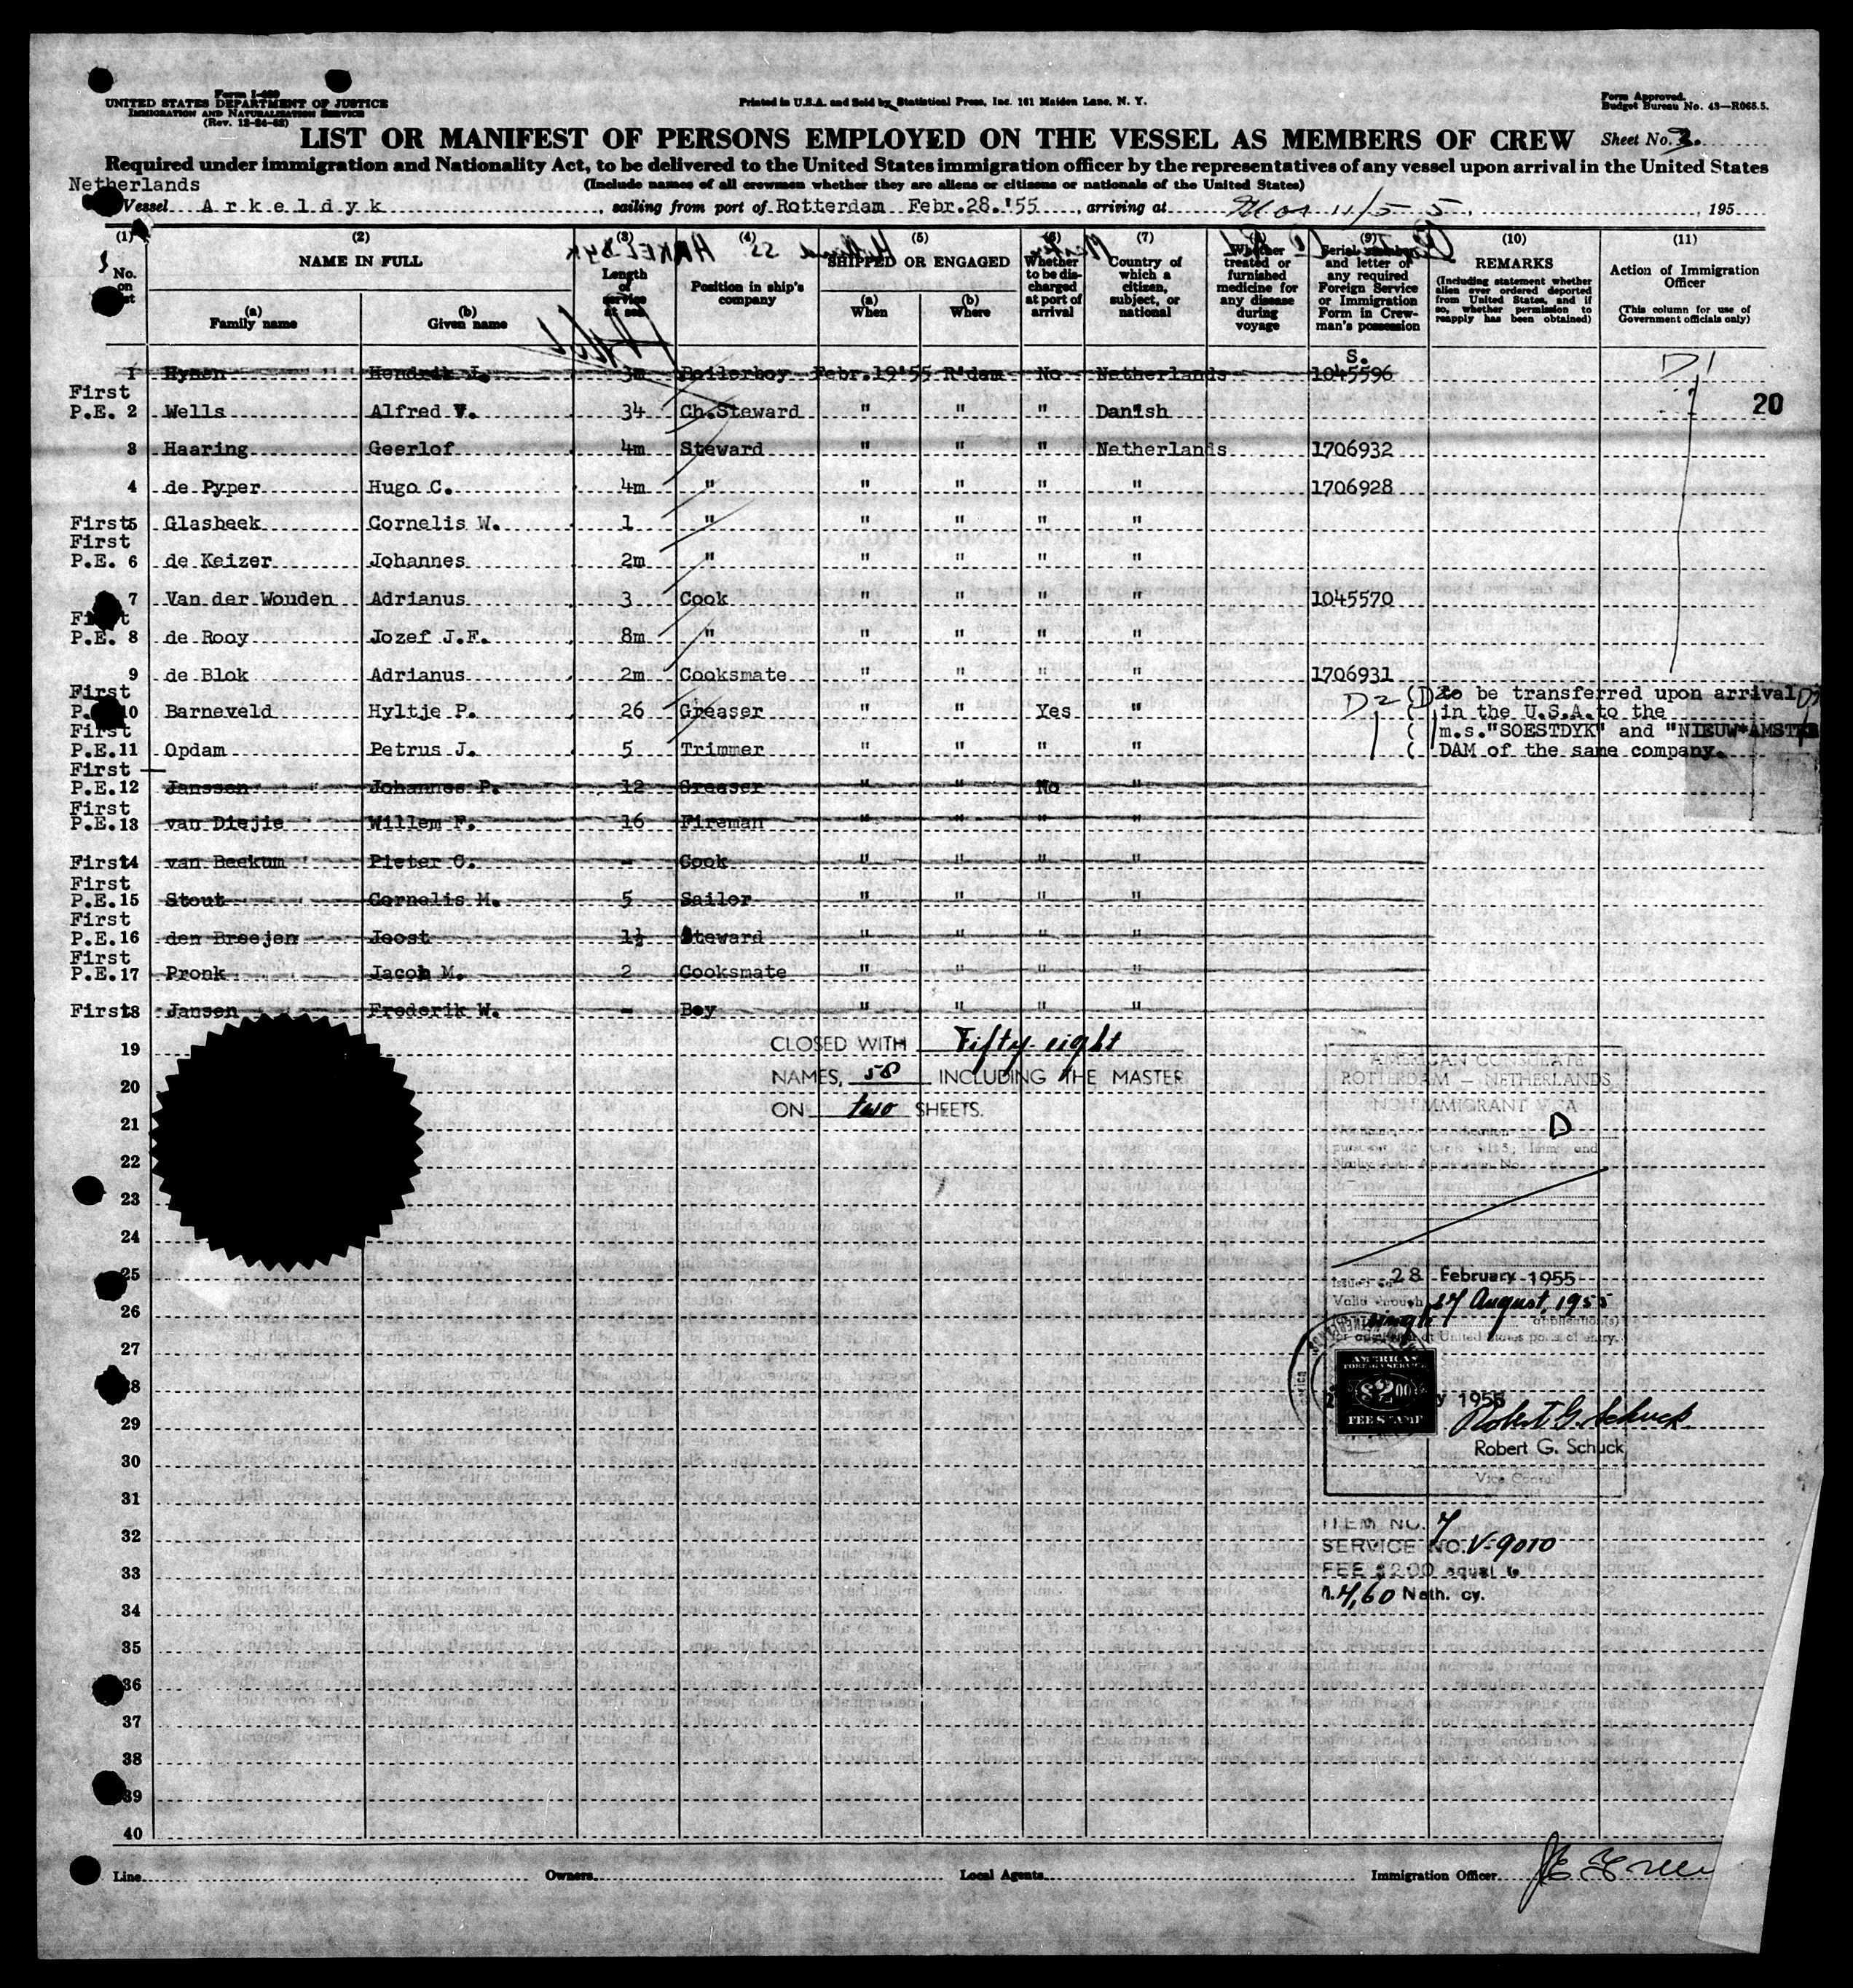 Form I-489
UNITED STATES DEPARTMENT OF JUSTICE
IMMIGRATION AND NATURALIZATION SERVICE
(Rev. 12-24-52)
Printed in U.S.A. and Sold by Statistical Press, Inc. 161 Maiden Lane, N. Y.
Form Approved.
Budget Bureau No. 43—R065.5.
LIST OR MANIFEST OF PERSONS EMPLOYED ON THE VESSEL AS MEMBERS OF CREW
Sheet No.
Required under immigration and Nationality Act, to be delivered to the United States immigration officer by the representatives of any vessel upon arrival in the United States
Netherlands
(Include names of all crewmen whether they are aliens or citizens or nationals of the United States)
Vessel Arkeldyk, sailing from port of Rotterdam Febr.28.'55, arriving at Mar 11/55, 195
(1) (2) (3) (4) (5) (6) (7) (9) (10) (11)
No. on list
NAME IN FULL
(a) Family name
(b) Given name
Length of service at sea
Position in ship's company
SHIPPED OR ENGAGED
(a) When
(b) Where
Whether to be discharged at port of arrival
Country of which a citizen, subject, or national
Whether treated or furnished medicine for any disease during voyage
Serial number and letter of any required Foreign Service or Immigration Form in Crewman's possession
REMARKS
(Including statement whether alien ever ordered deported from United States, and if so, whether permission to reapply has been obtained)
Action of Immigration Officer
(This column for use of Government officials only)
S.
1 Hynen Hendrik J. 3m Boilerboy Febr.19'55 R'dam No Netherlands 1045596 D1
First
P.E. 2 Wells Alfred V. 34 Ch.Steward " " " Danish 20
3 Haaring Geerlof 4m Steward " " " Netherlands 1706932
4 de Pyper Hugo C. 4m " " " " " 1706928
First 5 Glasbeek Cornelis W. 1 " " " " "
First
P.E. 6 de Keizer Johannes 2m " " " " "
7 Van der Wouden Adrianus 3 Cook " " " " 1045570
First
P.E. 8 de Rooy Jozef J.F. 8m " " " " "
9 de Blok Adrianus 2m Cooksmate " " " " 1706931
First
P.E. 10 Barneveld Hyltje P. 26 Greaser " " Yes " D2
First
P.E. 11 Opdam Petrus J. 5 Trimmer " " " "
to be transferred upon arrival
in the U.S.A. to the
m.s."SOESTDYK" and "NIEUW AMSTER
DAM of the same company.
First
P.E. 12 Janssen Johannes P. 12 Greaser " " No "
First
P.E. 13 van Diejie Willem F. 16 Fireman " " " "
First 14 van Beekum Pieter C. - Cook " " " "
First
P.E. 15 Stout Cornelis M. 5 Sailor " " " "
First
P.E. 16 den Breejen Joost 1½ Steward " " " "
First
P.E. 17 Pronk Jacob M. 2 Cooksmate " " " "
First 18 Jansen Frederik W. - Boy " " " "
19
20
21
22
23
24
25
26
27
28
29
30
31
32
33
34
35
36
37
38
39
40
CLOSED WITH Fifty-eight
NAMES, 58 INCLUDING THE MASTER
ON two SHEETS.
AMERICAN CONSULATE
ROTTERDAM — NETHERLANDS
NONIMMIGRANT VISA
D
Issued on 28 February 1955
Valid through 27 August, 1955
single application(s)
for admission at United States ports of entry.
AMERICAN
FOREIGN SERVICE
$2.00
FEE STAMP
1955
Robert G. Schuck
Robert G. Schuck
Vice Consul
ITEM NO. 7
SERVICE NO. V-9010
FEE $2.00 equal to
fl. 7,60 Neth. cy.
Line
Owners
Local Agents
Immigration Officer